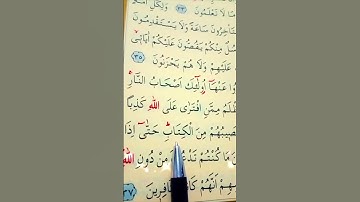 مَا لَا تَعْلَمُونَ ﴿٣٣﴾ وَلِكُلِّ اُمَّةٍ
يَسْتَأْخِرُونَ سَاعَةً وَلَا يَسْتَقْدِمُونَ
رُسُلٌ مِنْكُمْ يَقُصُّونَ عَلَيْكُمْ اٰيَاتٖى
عَلَيْهِمْ وَلَا هُمْ يَحْزَنُونَ ﴿٣٥﴾
عَنْهَٓا اُو۬لٰٓئِكَ اَصْحَابُ النَّارِ
اَظْلَمُ مِمَّنِ افْتَرٰى عَلَى اللّٰهِ كَذِبًا
نَصٖيبُهُمْ مِنَ الْكِتَابِ حَتّٰٓى اِذَا
مَا كُنْتُمْ تَدْعُونَ مِنْ دُونِ اللّٰهِ
اَنَّهُمْ كَانُوا كَافِرٖينَ ﴿٣٧﴾